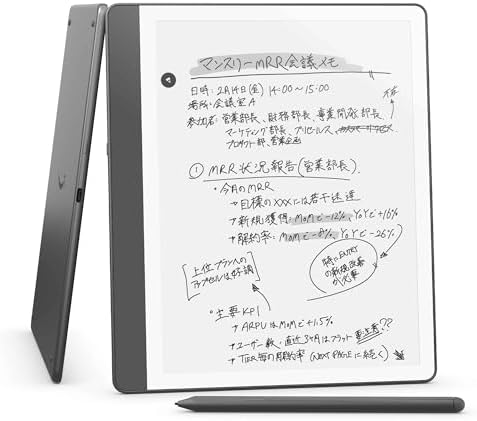 マンスリーMRR会議メモ
日時：2月14日(金) 14:00〜15:00
場所：会議室A
参加者：営業部長、財務部長、事業開発部長
マーケティング部長、プリセールス、
プロダクト部、営業企画
欠席
① MRR状況報告（営業部長）
・今月のMRR
→目標のXXXには若干未達
→新規獲得：MoMで-12%、YoYで+16%
→解約率：MoMで-8%、YoYで-26%
上位プランへの
アップセルは好調
特にENTRY
の新規改善
が必要
・主要KPI
→ARPUはMoMで+1.5%
→ユーザー数：直近3ヶ月はフラット ??
→TIER毎の解約率（NEXT PAGEに続く）